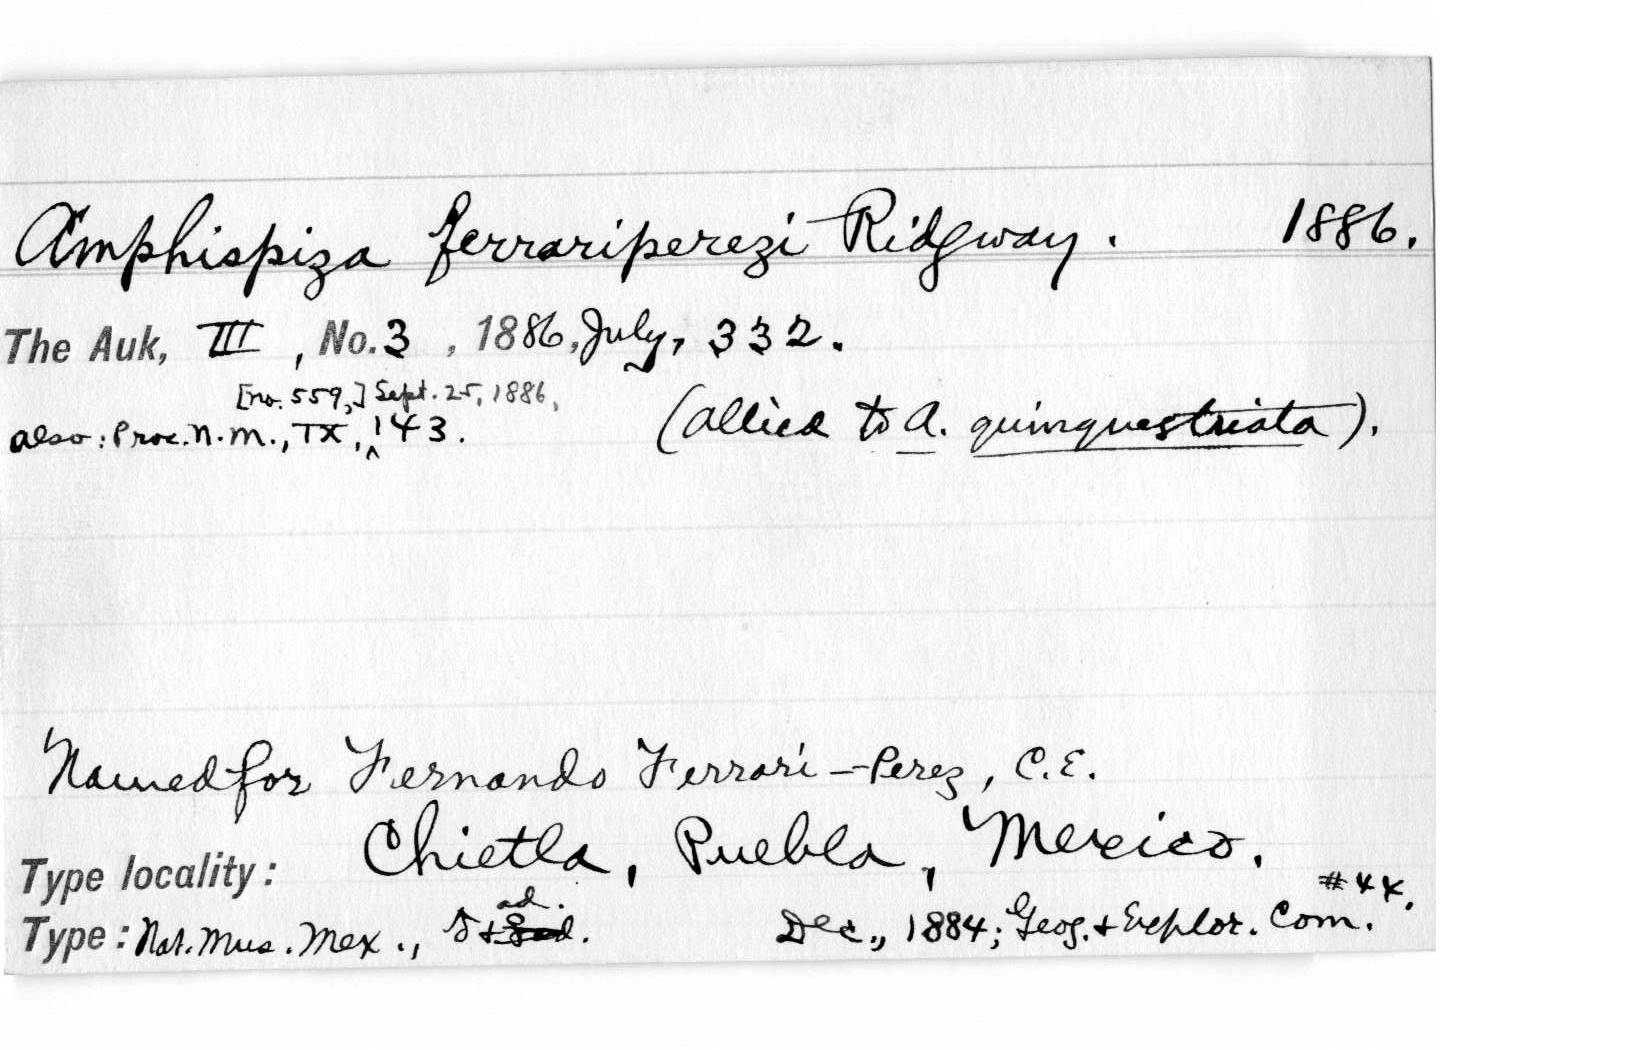 Amphispiza ferrariperezi Ridgway. 1886.
The Auk, III, No. 3, 1886, July, 332.
[no. 559,] Sept. 25, 1886,
also: Proc. N. M., IX, 143. (allied to A. quinquestriata).
Named for Fernando Ferrari-Perez, C.E.
Type locality: Chietla, Puebla, Mexico.
ad. #44.
Type: Nat. Mus. Mex., Dec., 1884; Geog. + Explor. Com.